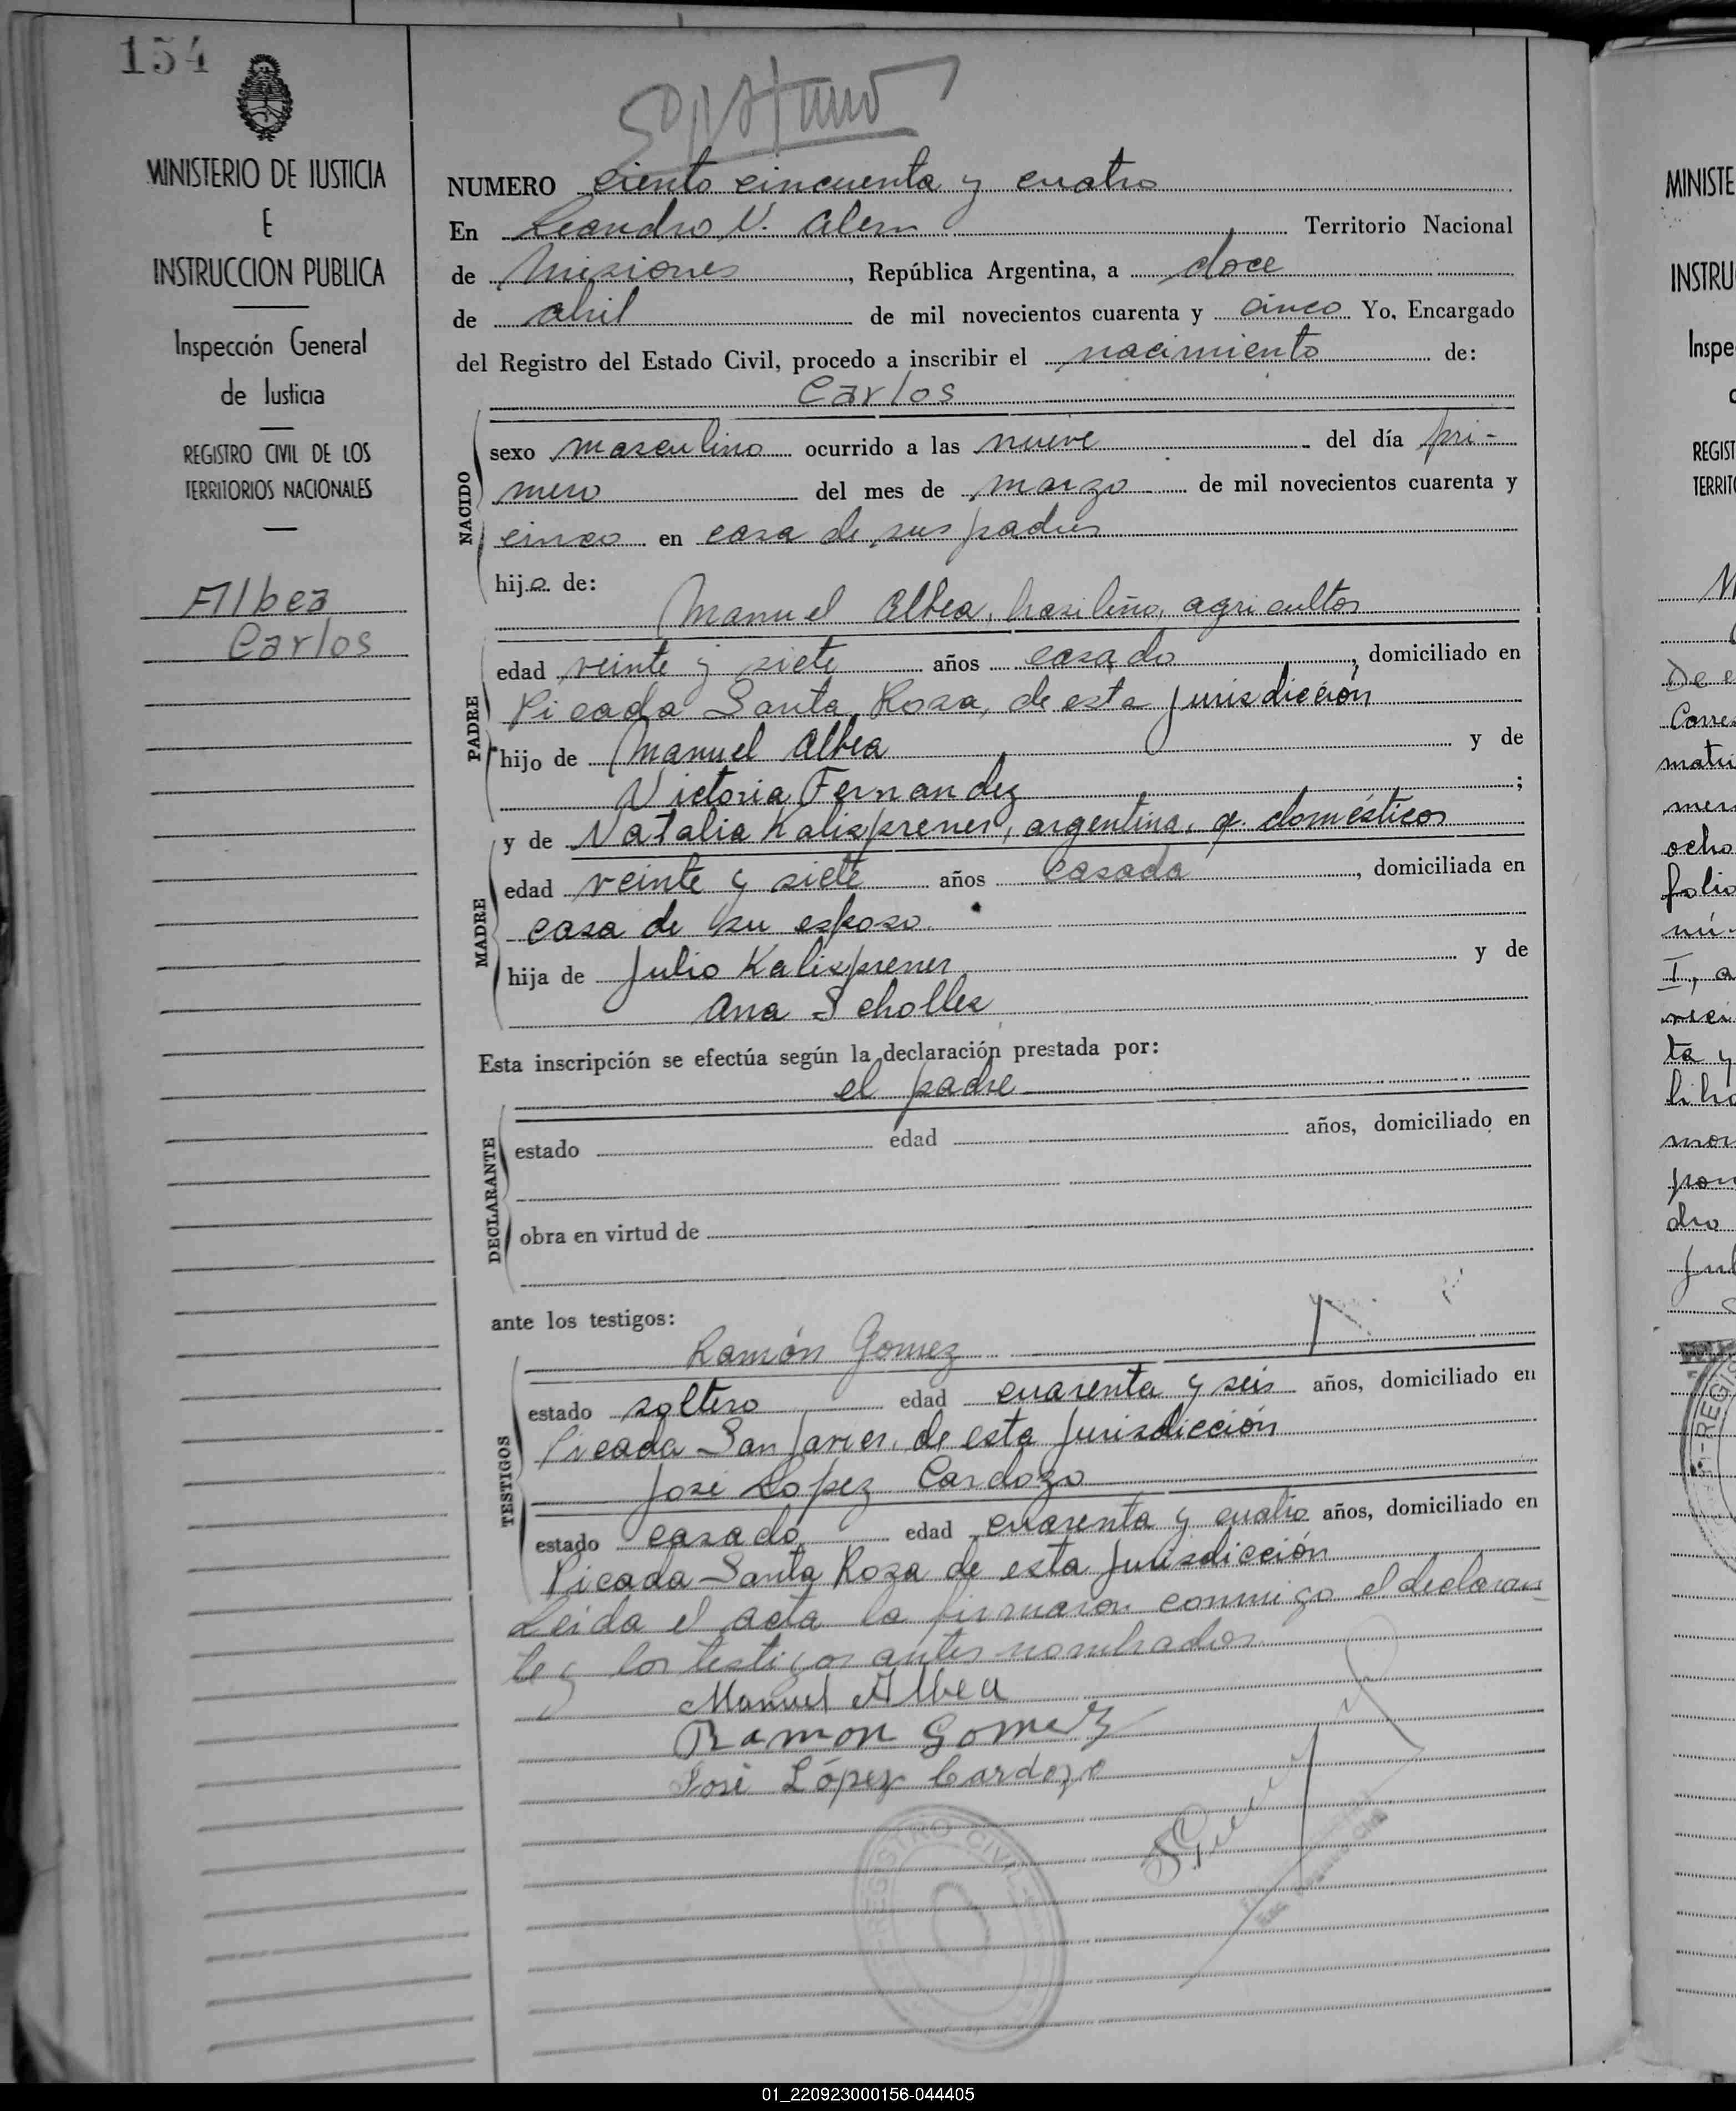 154
MINISTERIO DE JUSTICIA
E
INSTRUCCION PUBLICA
Inspección General
de Justicia
REGISTRO CIVIL DE LOS
TERRITORIOS NACIONALES
Albea
Carlos
NUMERO ciento cincuenta y cuatro
En Leandro N. Alem Territorio Nacional
de Misiones, República Argentina, a doce
de abril de mil novecientos cuarenta y cinco Yo, Encargado
del Registro del Estado Civil, procedo a inscribir el nacimiento de:
Carlos
NACIDO
sexo masculino ocurrido a las nueve del día pri-
mero del mes de marzo de mil novecientos cuarenta y
cinco en casa de sus padres
hijo de:
Manuel Albea, brasileño, agricultor
PADRE
edad veinte y siete años casado, domiciliado en
Picada Santa Rosa, de esta jurisdicción
hijo de Manuel Albea y de
Victoria Fernandez;
y de Natalia Kalisprener, argentina, q. domésticos
MADRE
edad veinte y siete años casada, domiciliada en
casa de su esposo.
hija de Julio Kalisprener y de
Ana Scholles
Esta inscripción se efectúa según la declaración prestada por:
el padre
DECLARANTE
estado edad años, domiciliado en
obra en virtud de
ante los testigos:
Ramón Gomez
TESTIGOS
estado soltero edad cuarenta y seis años, domiciliado en
Picada San Javier, de esta jurisdicción
José Lopez Cardozo
estado casado edad cuarenta y cuatro años, domiciliado en
Picada Santa Rosa de esta jurisdicción
Leida el acta la firmaron conmigo el declaran-
te y los testigos antes nombrados.
Manuel Albea
Ramon Gomez
José López Cardozo
REGISTRO CIVIL
MINISTE
INSTRU
Inspe
REGIST
TERRIT
01_220923000156-044405